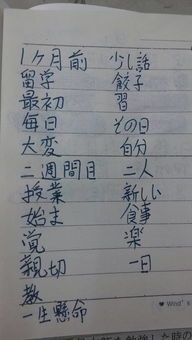 1ヶ月前 少し話
留学 餃子
最初 習
毎日 その日
大変 自分
二週間目 二人
授業 新しい
始ま 食事
覚 楽
親切 一日
教
一生懸命
♥ Wind's